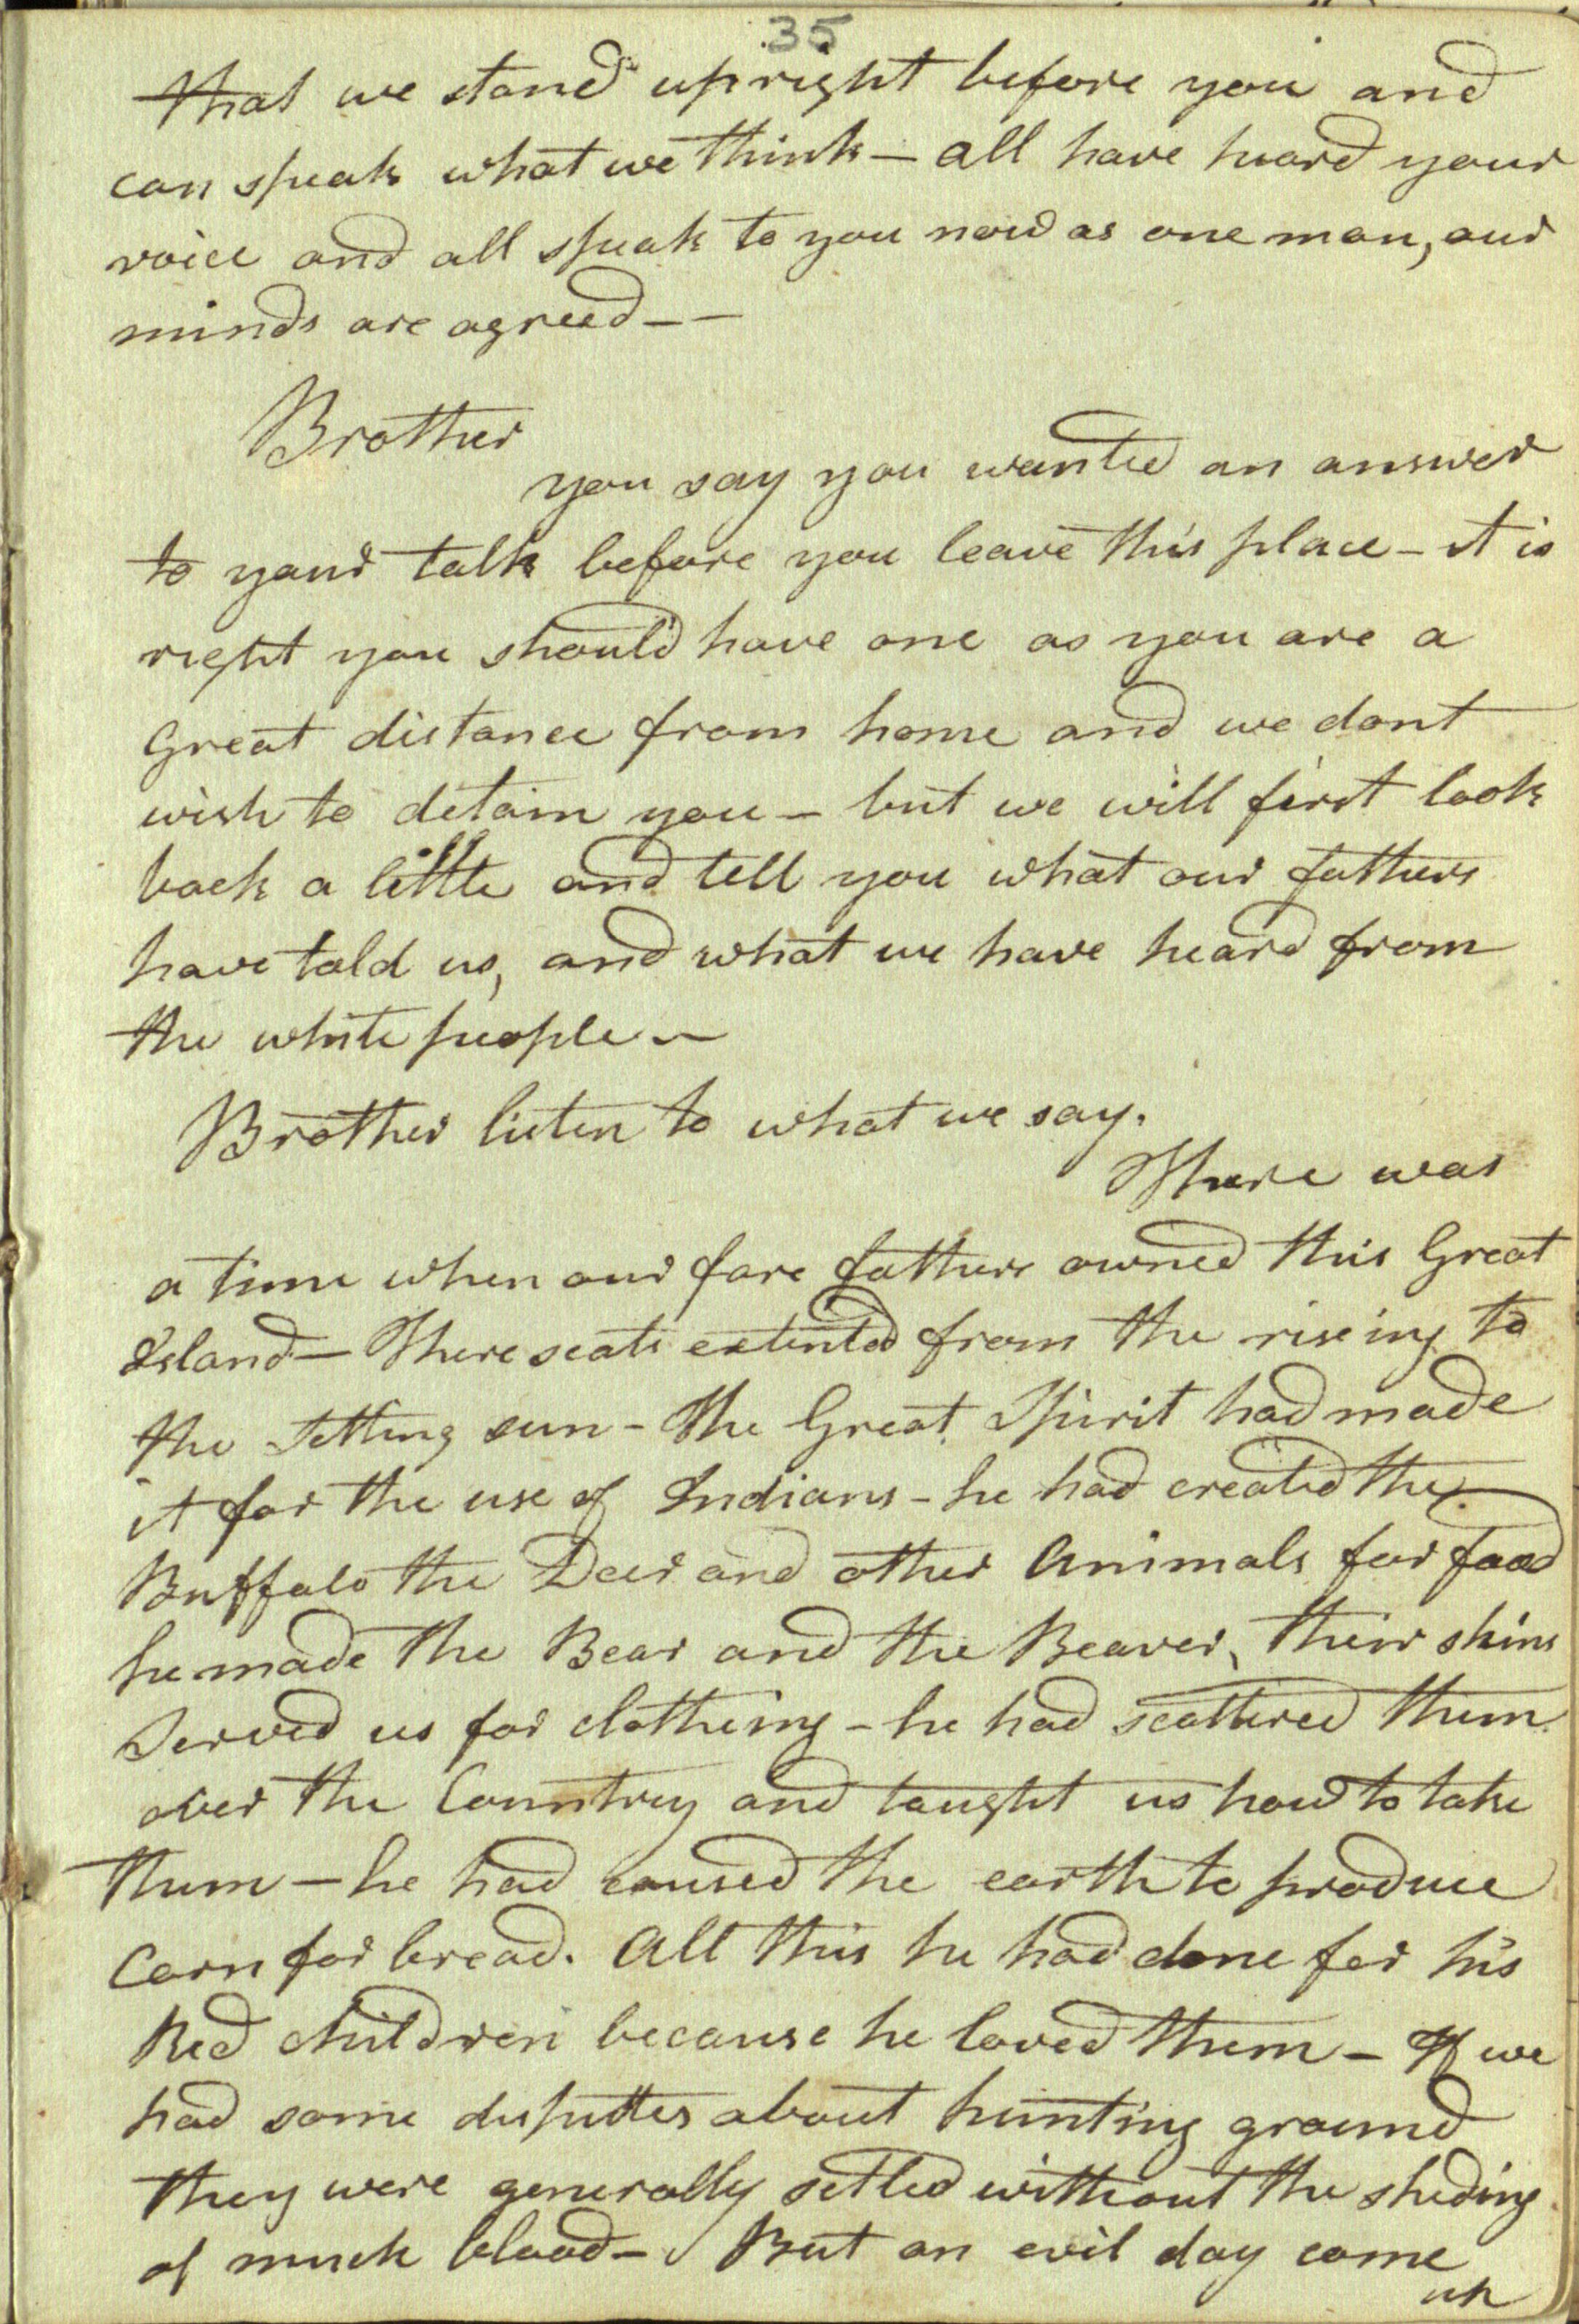 35
that we stand upright before you and
can speak what we think — all have heard your
voice and all speak to you now as one man, our
minds are agreed — —
Brother
you say you wanted an answer
to your talk before you leave this place — it is
right you should have one as you are a
Great distance from home and we dont
wish to detain you — but we will first look
back a little and tell you what our fathers
have told us, and what we have heard from
the white people —
Brother listen to what we say.
There was
a time when our fore fathers owned this Great
Island — There seats extented from the riseing to
the Setting sun — the Great Spirit had made
it for the use of Indians — he had created the
Buffalo the Deer and other Animals for food
he made the Bear and the Beaver, their skins
Served us for clotheing — he had scattered them
over the Country and taught us how to take
them — he had caused the earth to produce
Corn for bread. All this he had done for his
Red children because he loved them — If we
had some disputtes about hunting ground
they were generally setled without the sheding
of much blood — But an evil day come
up